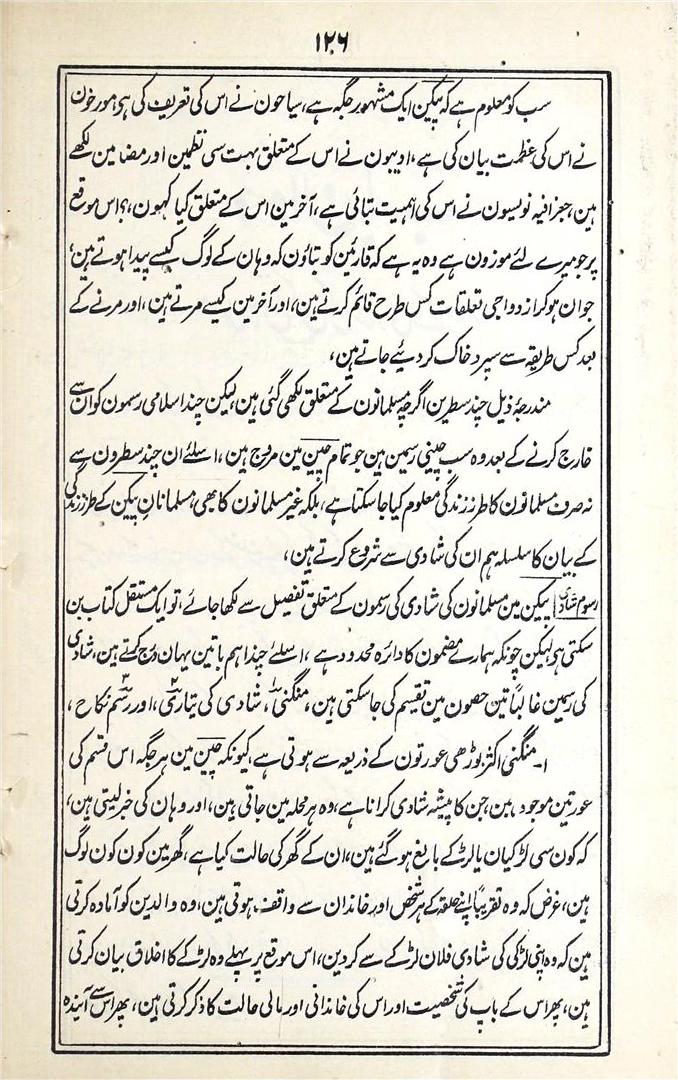 ۱۲۶
سب کو معلوم ہے کہ پیکن ایک مشہور جگہ ہے، سیاحون نے اس کی تعریف کی ہی، مورخون
نے اس کی عظمت بیان کی ہے، ادیبون نے اس کے متعلق بہت سی نظمین اور مضامین لکھے
ہین، جغرافیہ نویسون نے اس کی اہمیت بتائی ہے، آخر مین اس کے متعلق کیا کہون،؟ اس موقع
پر جو میرے لئے موزون ہے وہ یہ ہے کہ قارئین کو بتاؤن کہ وہان کے لوگ کیسے پیدا ہوتے ہین،
جوان ہو کر ازدواجی تعلقات کس طرح قائم کرتے ہین، اور آخر مین کیسے مرتے ہین، اور مرنے کے
بعد کس طریقہ سے سپرد خاک کر دیئے جاتے ہین،
مندرجۂ ذیل چند سطرین اگرچہ مسلمانون کے متعلق لکھی گئی ہین، لیکن چند اسلامی رسمون کو ان سے
خارج کرنے کے بعد وہ سب چینی رسمین ہین جو تمام چین مین مروج ہین، اسلئے ان چند سطرون سے
نہ صرف مسلمانون کا طرز زندگی معلوم کیا جا سکتا ہے، بلکہ غیر مسلمانون کا بھی، مسلمانانِ پیکن کے طرز زندگی
کے بیان کا سلسلہ ہم ان کی شادی سے شروع کرتے ہین،
رسوم شادی پیکن مین مسلمانون کی شادی کی رسمون کے متعلق تفصیل سے لکھا جائے، تو ایک مستقل کتاب بن
سکتی ہی، لیکن چونکہ ہمارے مضمون کا دائرہ محدود ہے، اسلئے چند اہم باتین یہان درج کرتے ہین، شادی
کی رسمین غالباً تین حصون مین تقسیم کی جا سکتی ہین، منگنی۱، شادی کی تیاری۲، اور رسم۳ نکاح،
۱۔ منگنی اکثر بوڑھی عورتون کے ذریعہ سے ہوتی ہے، کیونکہ چین مین ہر جگہ اس قسم کی
عورتین موجود ہین، جن کا پیشہ شادی کرانا ہے، وہ ہر محلہ مین جاتی ہین، اور وہان کی خبر لیتی ہین،
کہ کون سی لڑکیان یا لڑکے بالغ ہو گئے ہین، ان کے گھر کی حالت کیا ہے، گھر مین کون کون لوگ
ہین، غرض کہ وہ تقریباً اپنے حلقہ کے ہر شخص اور خاندان سے واقف ہوتی ہین، وہ والدین کو آمادہ کرتی
ہین کہ وہ اپنی لڑکی کی شادی فلان لڑکے سے کر دین، اس موقع پر پہلے وہ لڑکے کا اخلاق بیان کرتی
ہین، پھر اس کے باپ کی شخصیت اور اس کی خاندانی اور مالی حالت کا ذکر کرتی ہین، پھر اس سے آیندہ